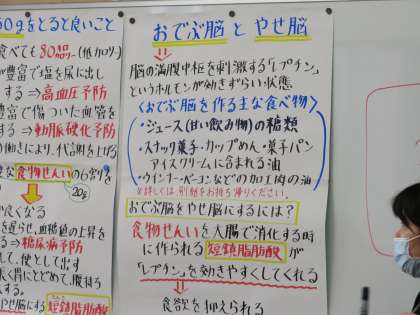 50gをとると良いこと
食べても80kcal(低カロリー)
が豊富で塩を尿に出し
する⇒高血圧予防
豊富で傷ついた血管を
する⇒動脈硬化予防
働きにより、代謝を上げる
食物せんいの6割を
20g
が良くなる
を遅らせ、血糖値の上昇を
する⇒糖尿病予防
して、便として出す
長く胃にとどめて、腹持ち
する
やせ脳にする短鎖脂肪酸
おでぶ脳とやせ脳
脳の満腹中枢を刺激する「レプチン」
というホルモンが効きずらい状態
〈おでぶ脳を作る主な食べ物〉
・ジュース(甘い飲み物)の糖類
・スナック菓子・カップめん・菓子パン
アイスクリームに含まれる油
・ウインナー・ベーコンなどの加工肉の油
※詳しくは、別紙をお持ち帰りください。
おでぶ脳をやせ脳にするには?
食物せんいを大腸で消化する時
に作られる短鎖脂肪酸が
「レプチン」を効きやすくしてくれる
食欲を抑えられる